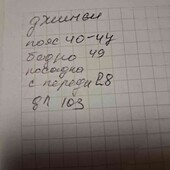 джинсы
пояс 40-44
бедро 49
посадка
с переди 28
дл 103